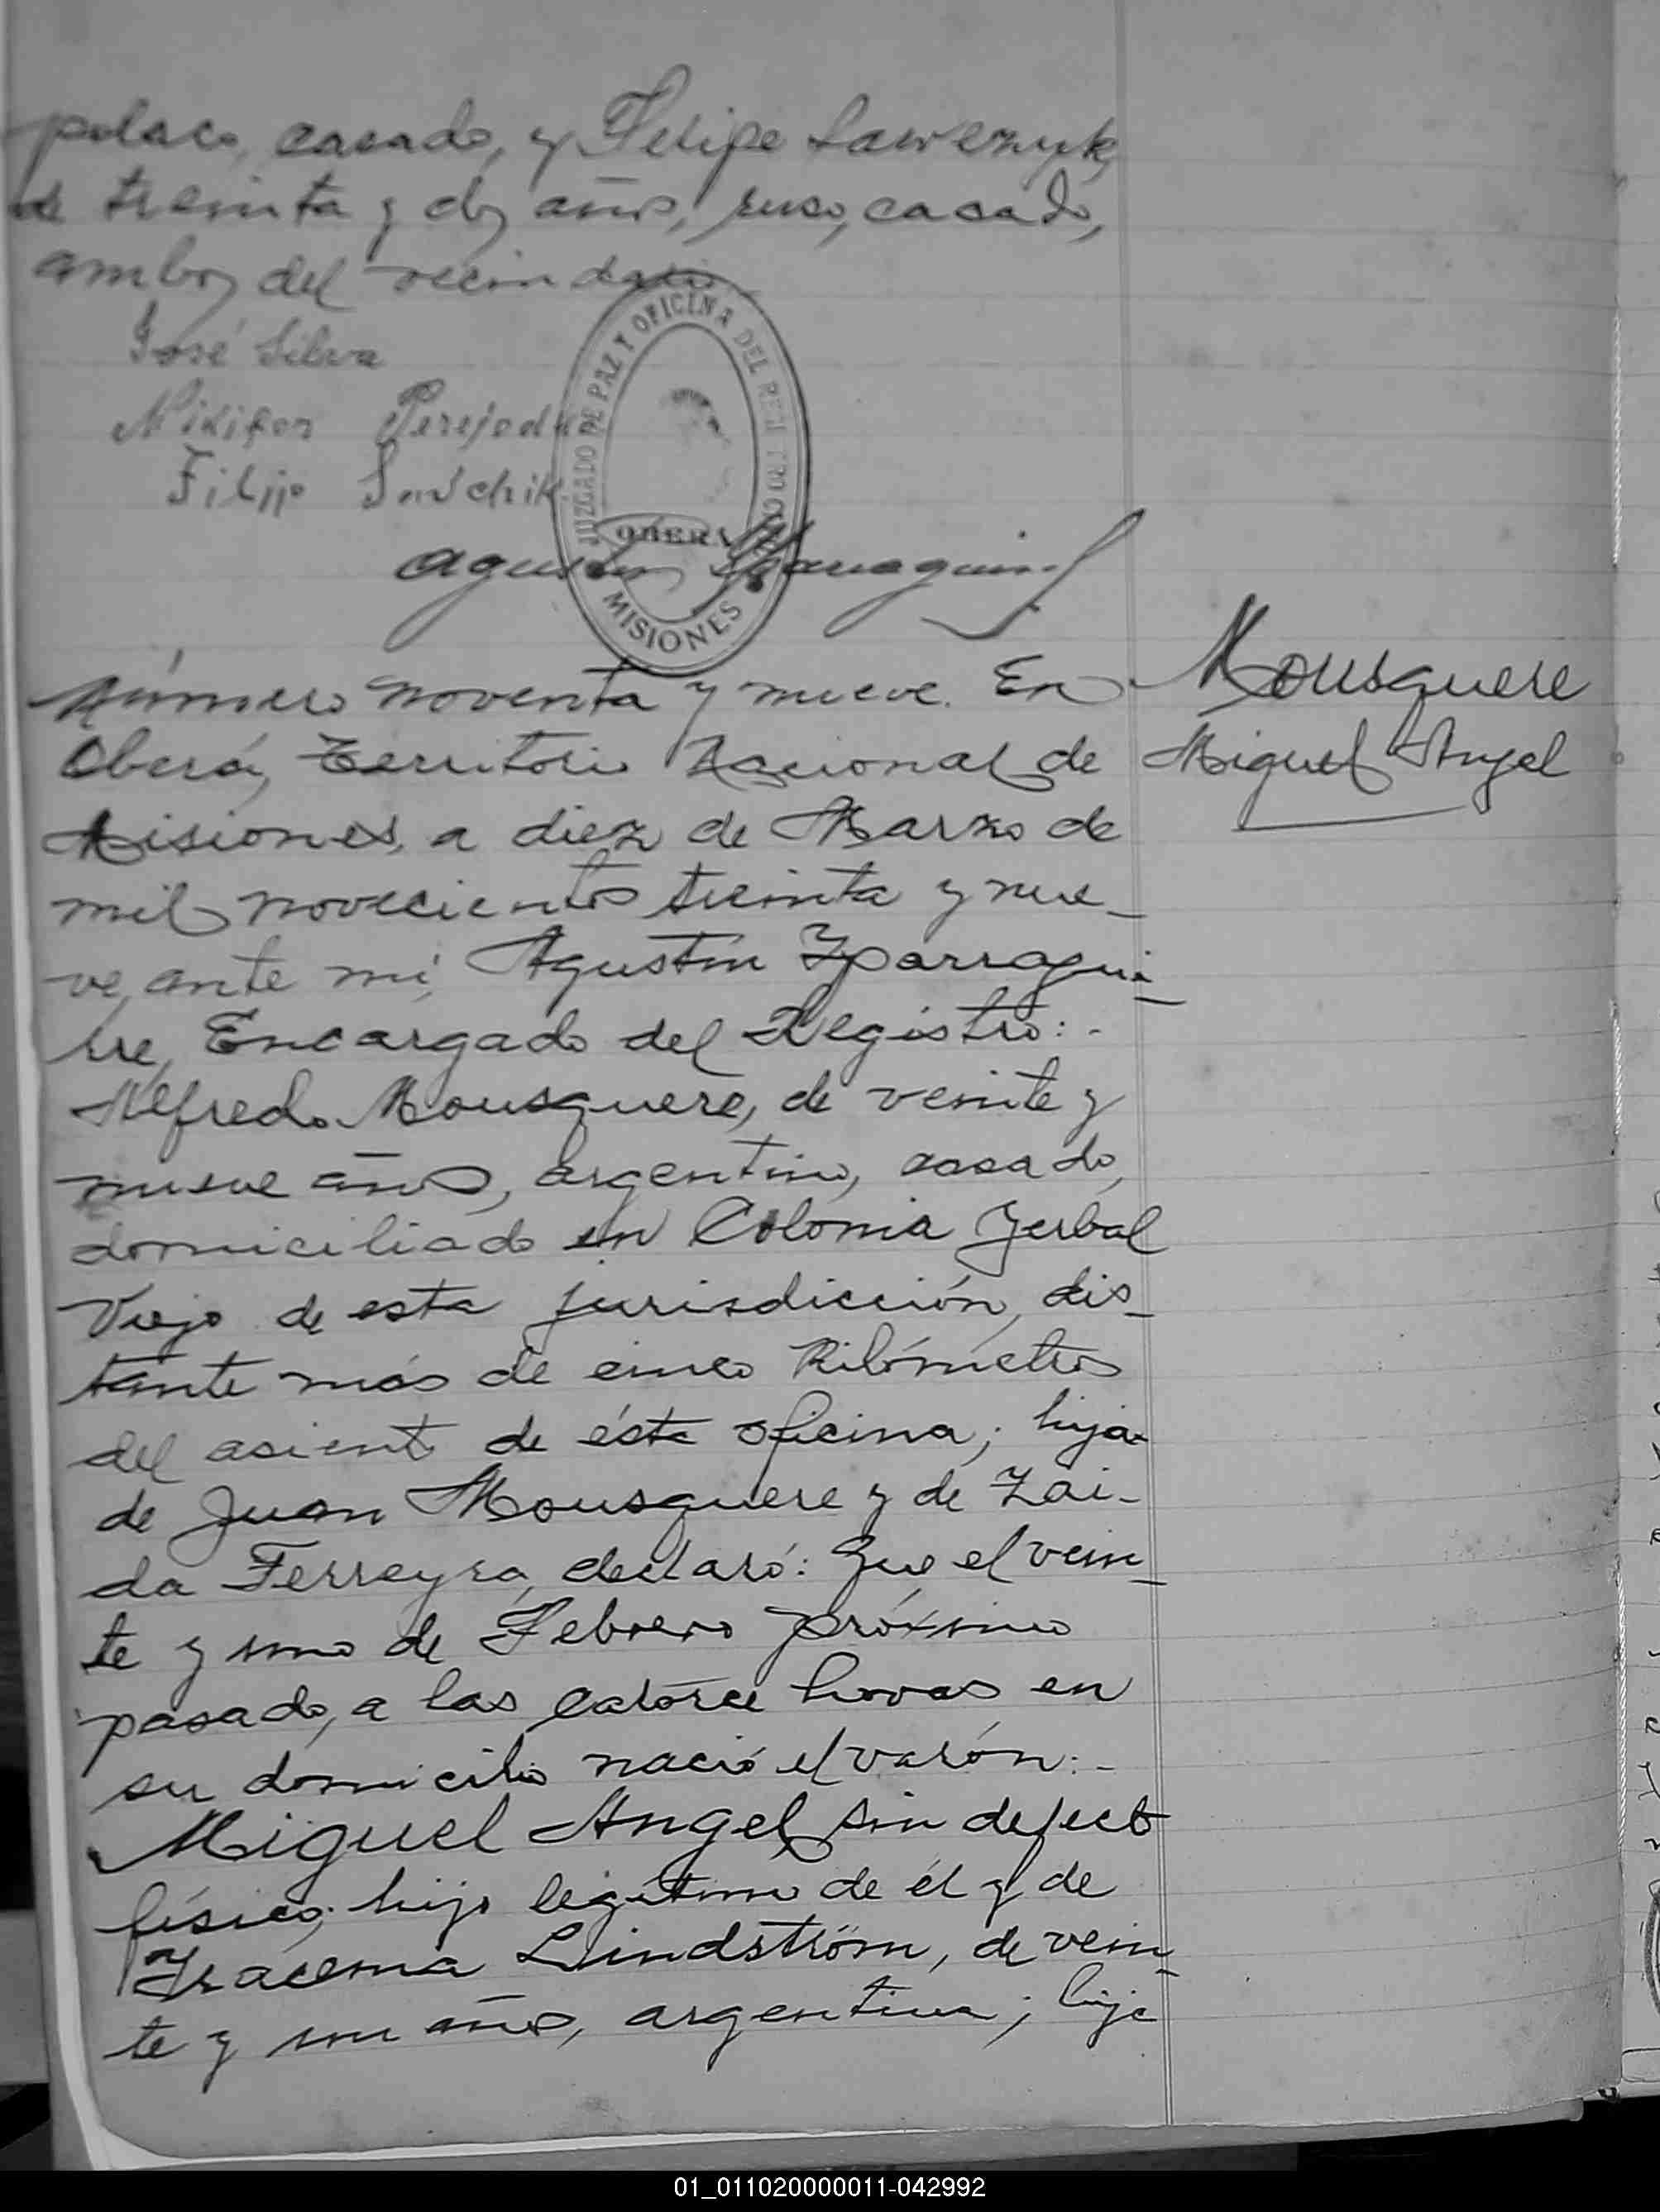 polaco, casado, y Felipe Lawczuk,
de treinta y dos años, ruso, casado,
ambos del vecindario
José Silva
Nikifor Perejoda
Filipp
JUZGADO DE PAZ Y OFICINA DEL REGISTRO CIVIL
OBERA
MISIONES
Agustín Yparraguirre
Número noventa y nueve. En
Mousquere
Oberá, Territorio Nacional de
Miguel Angel
Misiones, a diez de Marzo de
mil novecientos treinta y nue-
ve, ante mí, Agustín Yparragui-
rre, Encargado del Registro:-
Alfredo Mousquere, de veinte y
nueve años, argentino, casado,
domiciliado en Colonia Yerbal
Viejo de esta jurisdicción, dis-
tante más de cinco Kilómetros
del asiento de ésta oficina; hijo
de Juan Mousquere y de Zai-
da Ferreyra, declaró: Que el vein-
te y uno de Febrero próximo
pasado, a las catorce horas en
su domicilio nació el varón:-
Miguel Angel, sin defecto
físico; hijo legítimo de él y de
Yracema Lindström, de vein-
te y un años, argentina; hija
01_011020000011-042992